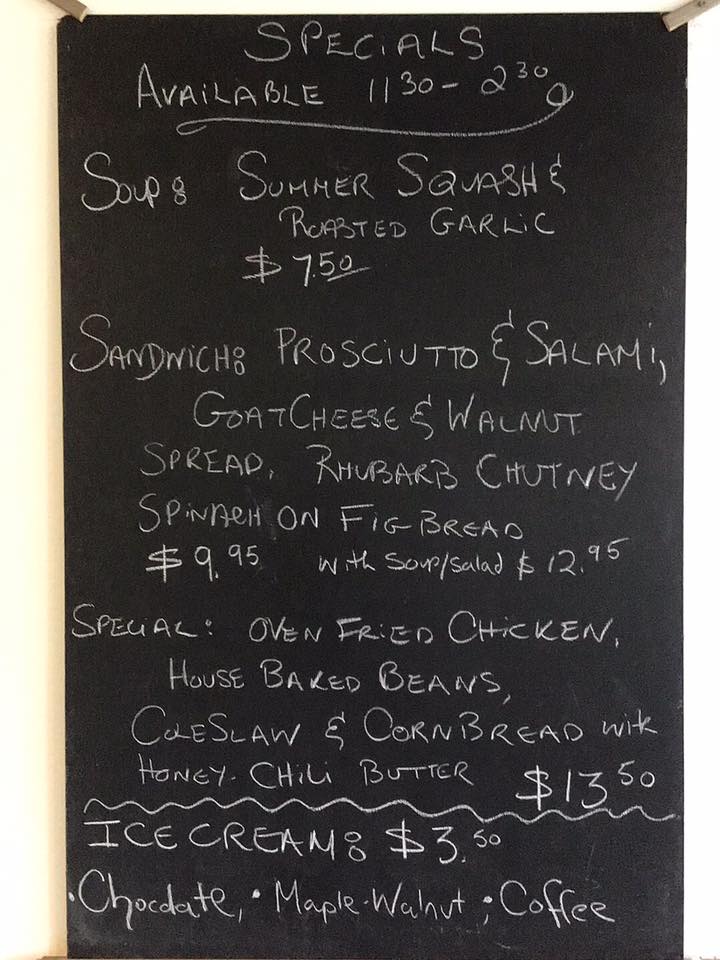 SPECIALS
AVAILABLE 11 30 - 2 30
SOUP: SUMMER SQUASH &
ROASTED GARLIC
$ 7.50
SANDWICH: PROSCIUTTO & SALAMI,
GOAT CHEESE & WALNUT
SPREAD, RHUBARB CHUTNEY
SPINACH ON FIG BREAD
$ 9.95 with soup/salad $ 12.95
SPECIAL: OVEN FRIED CHICKEN,
HOUSE BAKED BEANS,
COLESLAW & CORNBREAD with
HONEY-CHILI BUTTER $13 50
ICE CREAM: $3.50
• Chocolate, • Maple-Walnut ; Coffee